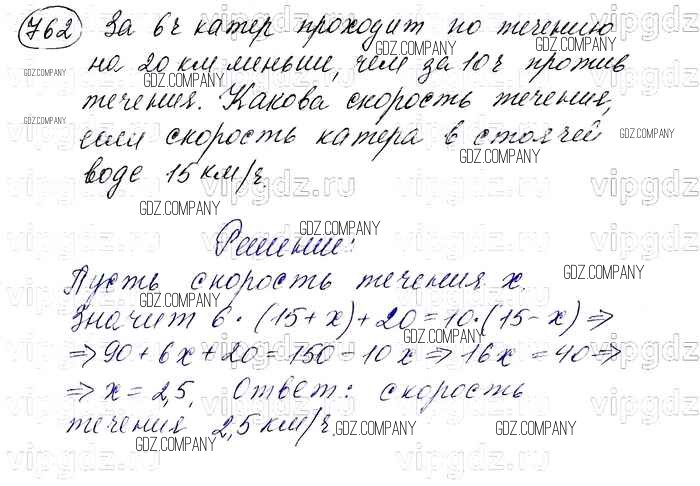 762 За 6ч катер проходит по течению
на 20 км меньше, чем за 10ч против
течения. Какова скорость течения,
если скорость катера в стоячей
воде 15 км/ч.
Решение:
Пусть скорость течения x.
Значит 6 · (15 + x) + 20 = 10 · (15 - x) ⇒
⇒ 90 + 6x + 20 = 150 - 10x ⇒ 16x = 40 ⇒
⇒ x = 2,5. Ответ: скорость
течения 2,5 км/ч.